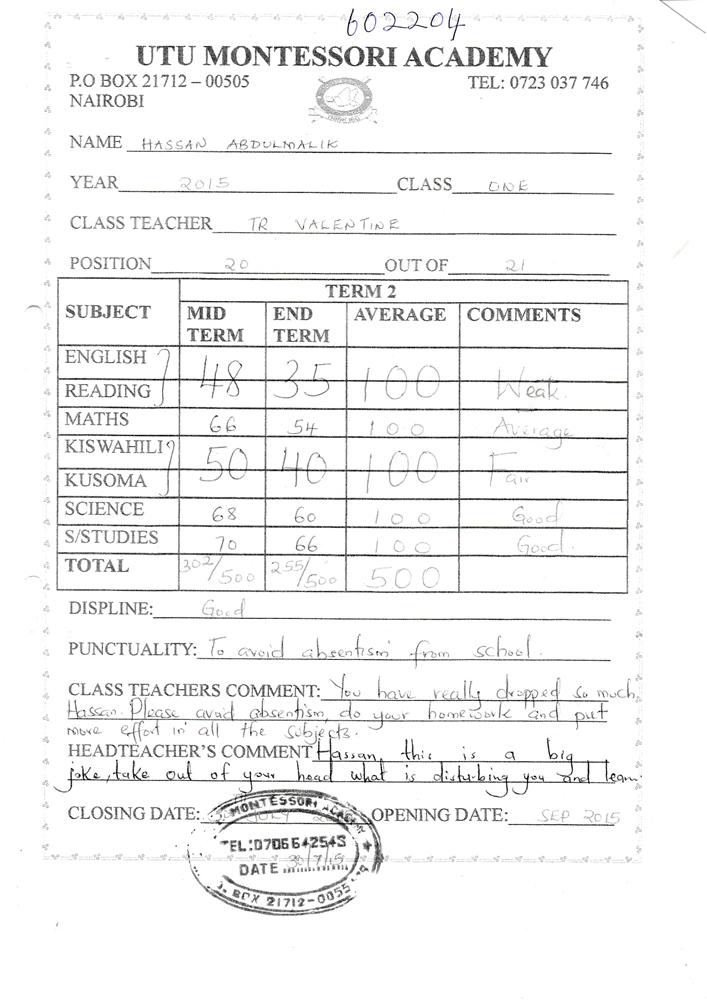 602204
UTU MONTESSORI ACADEMY
P.O BOX 21712 – 00505 TEL: 0723 037 746
NAIROBI
NAME HASSAN ABDULMALIK
YEAR 2015 CLASS ONE
CLASS TEACHER TR VALENTINE
POSITION 20 OUT OF 21
TERM 2
SUBJECT MID TERM END TERM AVERAGE COMMENTS
ENGLISH
READING 48 35 100 Weak.
MATHS 66 54 100 Average
KISWAHILI
KUSOMA 50 40 100 Fair
SCIENCE 68 60 100 Good
S/STUDIES 70 66 100 Good.
TOTAL 302/500 255/500 500
DISPLINE: Good
PUNCTUALITY: To avoid absentism from school.
CLASS TEACHERS COMMENT: You have really dropped so much,
Hassan. Please avoid absentism, do your homework and put
more effort in all the subjects.
HEADTEACHER'S COMMENT Hassan, this is a big
joke, take out of your head what is disturbing you and learn.
CLOSING DATE: JULY OPENING DATE: SEP 2015
MONTESSORI ACADEMY
TEL:0706642543
DATE 30/7/15
BOX 21712-0055